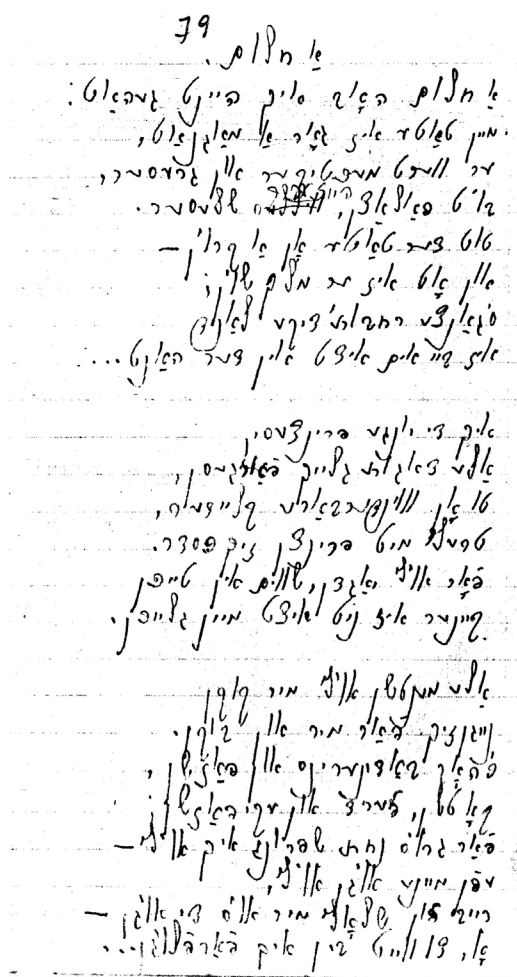 79
אַ חלום.
אַ חלום האָב איך היינט געהאַט:
מיין טאַטע איז גאָר אַ מאַגנאַט,
ער ווערט מעכטיקער און גרעסער,
בויט פּאַלאַצן, שלעסער.
טוט דער טאַטע אָן אַ קרוין —
און אָט איז ער מלך שוין;
ס'גאַנצע רחבותדיקע לאַנד
איז ביי אים איצט אין דער האַנט...
איך די יונגע פּרינצעסין
אַלע דאגות גלייך פאַרגעסן,
טו אָן וווּנדערבאַרע קליידער,
טרעף מיט פּרינצן זיך כסדר.
פאָר אויף יאַגדן, שווים אין טייכן
קיינער איז ניט איצט מיין גלייכן.
אַלע מענטשן אויף מיר קוקן
נייגן זיך פאַר מיר און בוקן.
כ'האָב באַדינערינס און פּאַזשן,
קאָטשן, פערד און עקיפּאַזשן;
פאַר גרויס נחת שפּרינג איך אויף —
עפן מיינע אויגן אויף,
רייב דעם שלאָף מיר אויס די אויגן —
אָ, ווייט בין איך פאַרפלויגן...